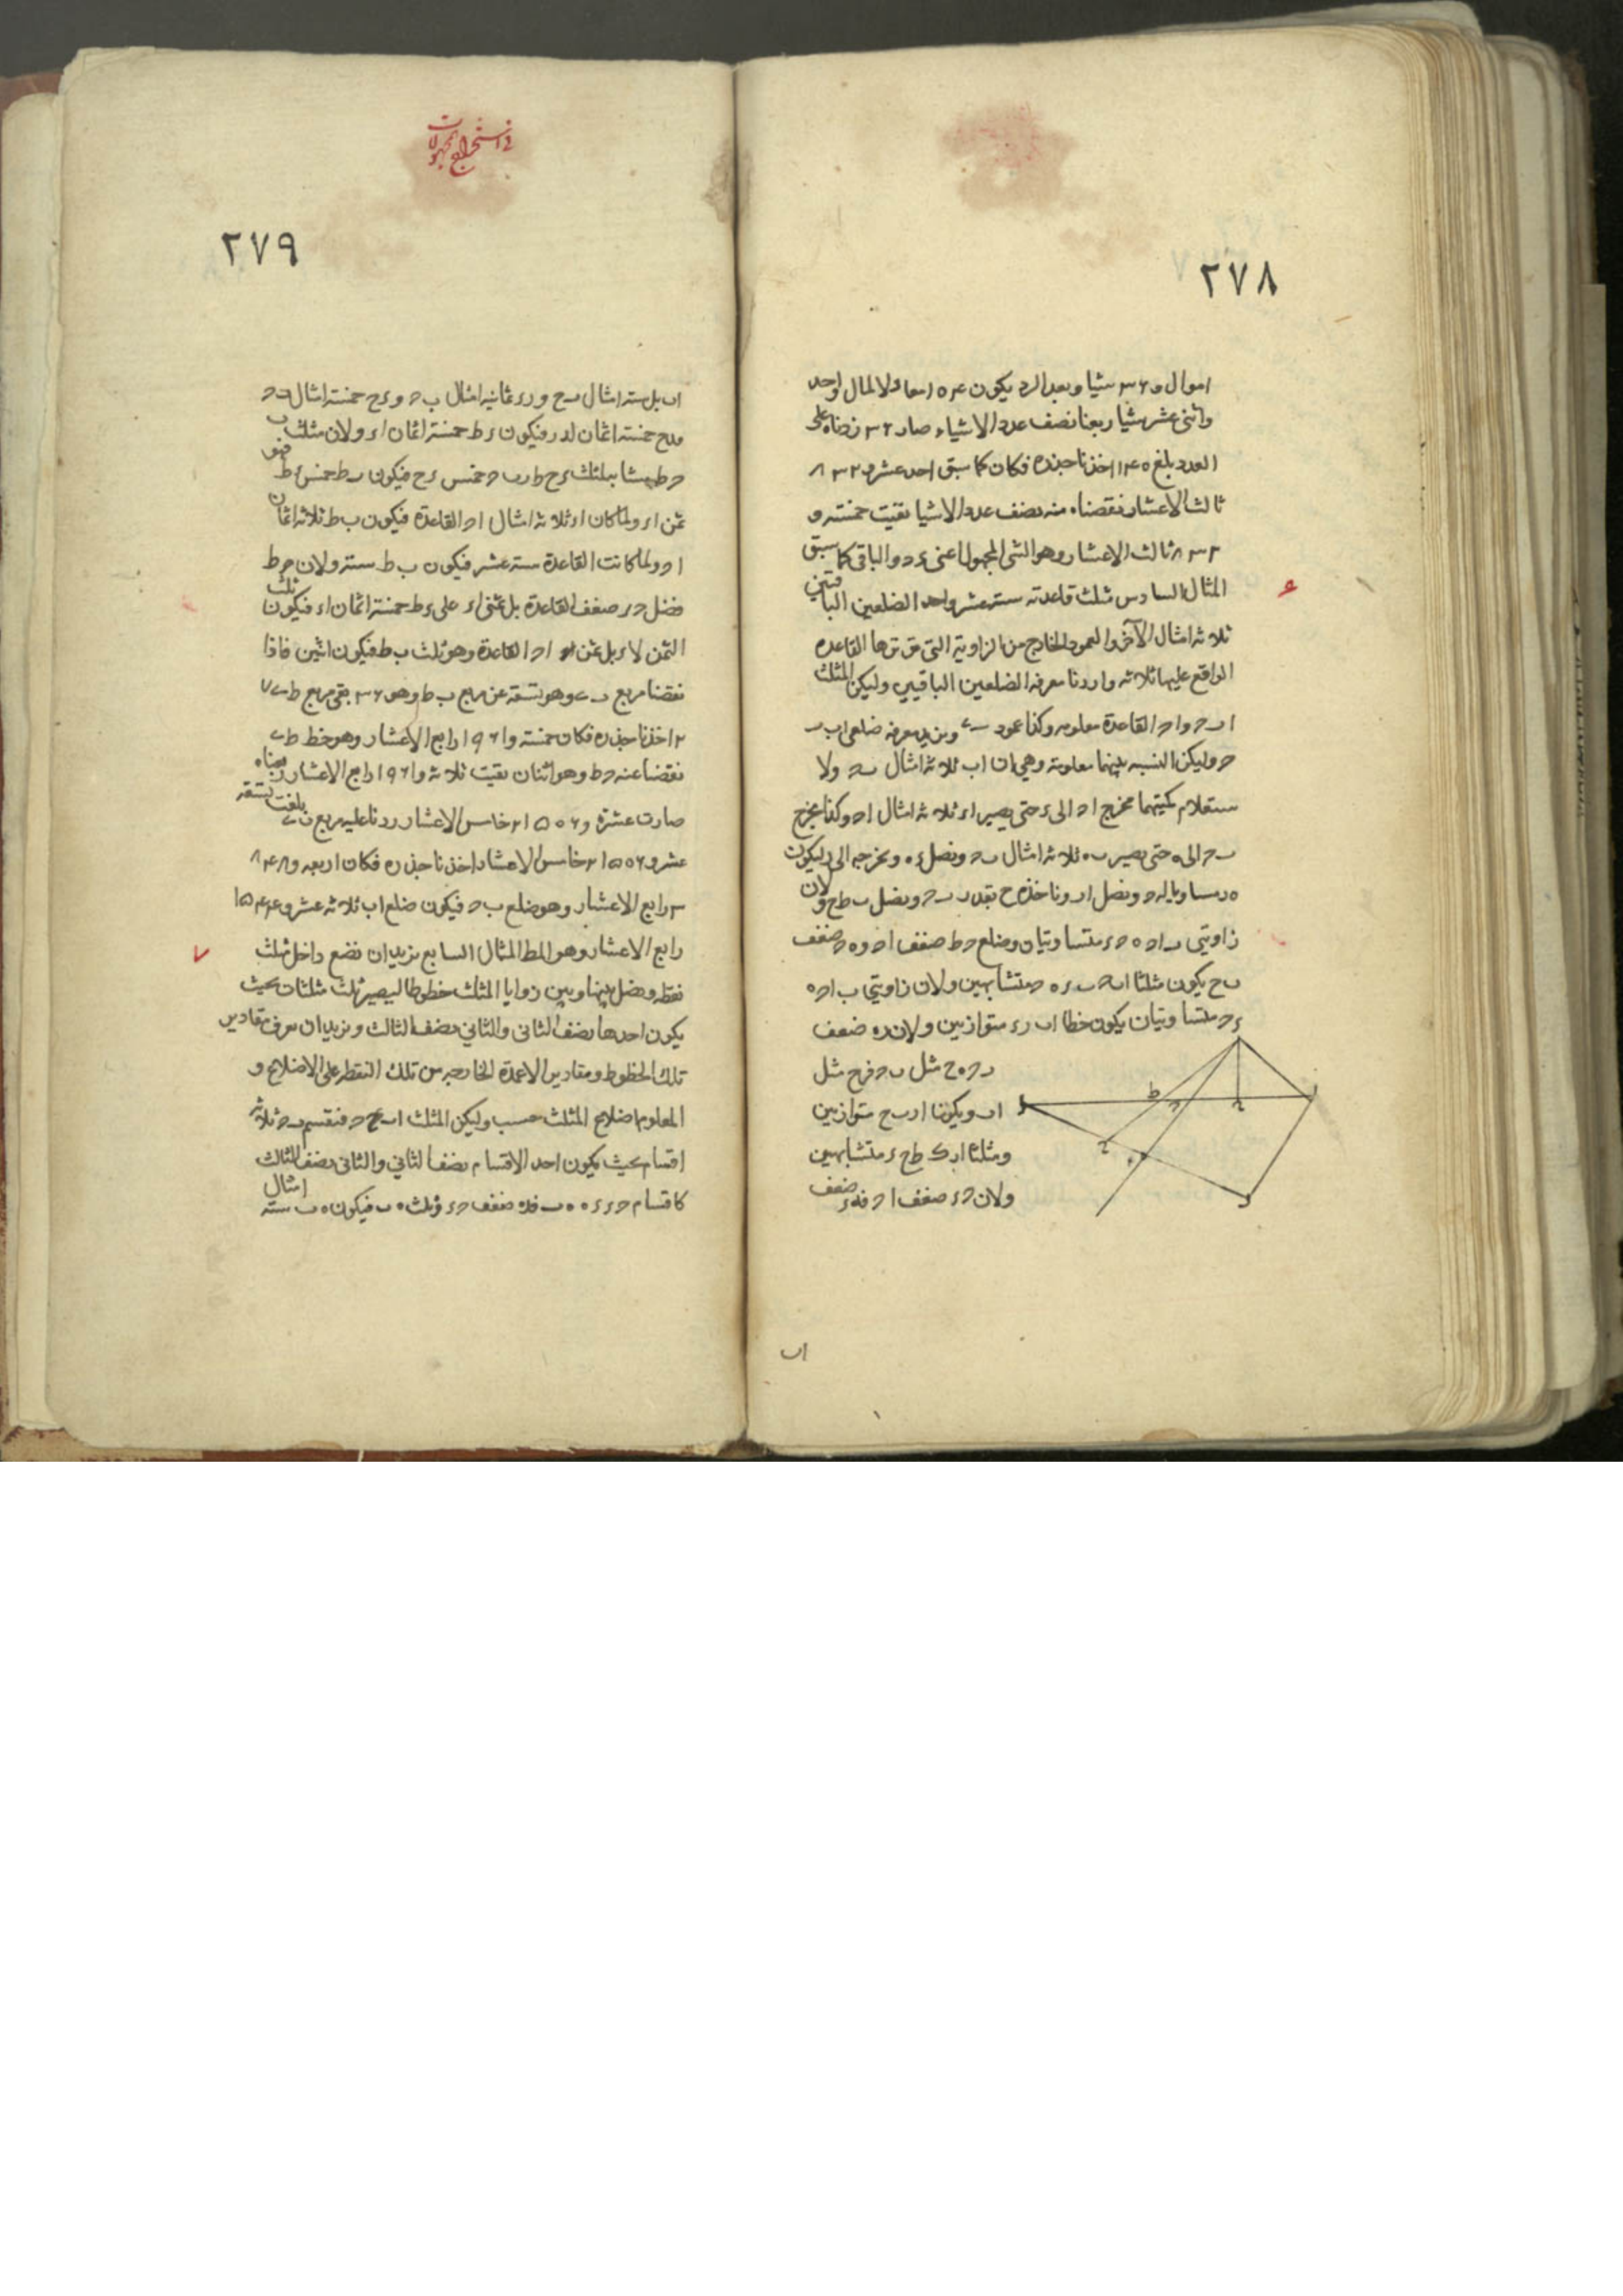 ٢٧٨
اموال و ٣٦ شيا وبعد الرد يكون ١٠٤ معادلا لمال واحد
واثنى عشر شيا ربعنا نصف عدد الاشياء صار ٣٦ زدناه على
العدد بلغ ١٤٠ اخذنا جذره فكان كما سبق احد عشر و ٨٣٢
ثالث الاعشار نقصنا منه نصف عدد الاشيا بقيت خمسة و
٨٣٢ ثالث الاعشار وهو الشى المجهول اعنى ء د والباقى كما سبق
المثال السادس مثلث قاعدته ستة عشر واحد الضلعين الباقيين
ثلاثة امثال الآخر والعمود الخارج من الزاوية التى توترها القاعدة
الواقع عليها ثلاثه واردنا معرفة الضلعين الباقيين وليكن المثلث
ا ب ح و ا ح القاعدة معلومه وكذا عمود ب ى ونريد معرفة ضلعى ا ب ب
ح وليكن النسبه بينهما معلومة وهى ان ا ب ثلاثة امثال ب ح ولا
ستعلام كميتهما نخرج ا ح الى ء حتى يصير ا ء ثلاثة امثال ا ح وكذا نخرج
ب ح الى ه حتى يصير ب ه ثلاثة امثال ب ح ونصل ء ه ونخرجه الى ر ليكون
ه ر مساويا له ونصل ا ر وناخذ ه ح بقدر ب ح ونصل ب ط ح و لان
زاويتى ب ا ح ه ح ء متساويتان وضلع ح ء ضعف ا ح و ه ح ضعف
ب ح يكون مثلثا ا ب ح ء ه ح متشابهين ولان زاويتى ب ا ح ه
ء ح متساويتان يكون خطا ا ب ر ء متوازيين ولان ء ه ضعف
ب ح ه ح مثل ب ح فرح مثل
ا ب ويكونا ا ر ب ح متوازيين
ومثلثا ا ر ء ط ح ء متشابهين
ولان ح ء ضعف ا ح فه ء ضعف
ا ب
في استخراج المجهولات
٢٧٩
ا ب بل ستة امثال ب ح و ر ء ثمانيه امثال ب ح و ء ح خمسة امثال ب ح
فء ح خمسة اثمان لء ر فيكون ء ط خمسة اثمان ا ء ولان مثلث ب
ح ط يشابه مثلث ء ح ط و ب ح خمس ء ح فيكون ح ط خمس ء ط فهو
ثمن ا ء ولما كان ا ء ثلاثة امثال ا ح القاعدة فيكون ب ط ثلاثة اثمان
ا ح ولما كانت القاعدة ستة عشر فيكون ب ط ستة ولان ح ط
فضل ح ء ضعف القاعدة بل ثلثى ا ء على ء ط خمسة اثمان ا ء فيكون ثلث
الثمن لا ء بل ثمن ا ح القاعدة وهو ثلث ب ط فيكون اثنين فاذا
نقصنا مربع ب ى وهو تسعة عن مربع ب ط وهو ٣٦ بقى مربع ط ى ٢٧
اخذنا جذره فكان خمسة و ١٩٦١ رابع الاعشار وهو خط ط ى
نقصنا عنه ح ط وهو اثنان بقيت ثلاثة و ١٩٦١ رابع الاعشار ربعناه
صارت عشرة و ٢١٥٥٦ خامس الاعشار زدنا عليه مربع ب ى بلغت تسعة
عشر و ٢١٥٥٦ خامس الاعشار اخذنا جذره فكان اربعه و ٨٤٨
٣ رابع الاعشار وهو ضلع ب ح فيكون ضلع ا ب ثلاثة عشر و ١٥٤٤
رابع الاعشار وهو المط المثال السابع نريد ان نضع داخل مثلث
نقطة ونصل بينها وبين زوايا المثلث خطوطا ليصير ثلث مثلثات بحيث
يكون احدها نصف الثانى والثانى نصف الثالث ونريد ان نعرف مقادير
تلك الخطوط ومقادير الاعمدة الخارجه من تلك النقطه على الاضلاع و
المعلوم اضلاع المثلث حسب وليكن المثلث ا ب ح فنقسم ب ح ثلاثة
اقسام بحيث يكون احد الاقسام نصف الثانى والثانى نصف الثالث
كاقسام ح ء ء ه ه ب فء ه ضعف ح ء وثلث ه ب فيكون ه ب ستة امثال